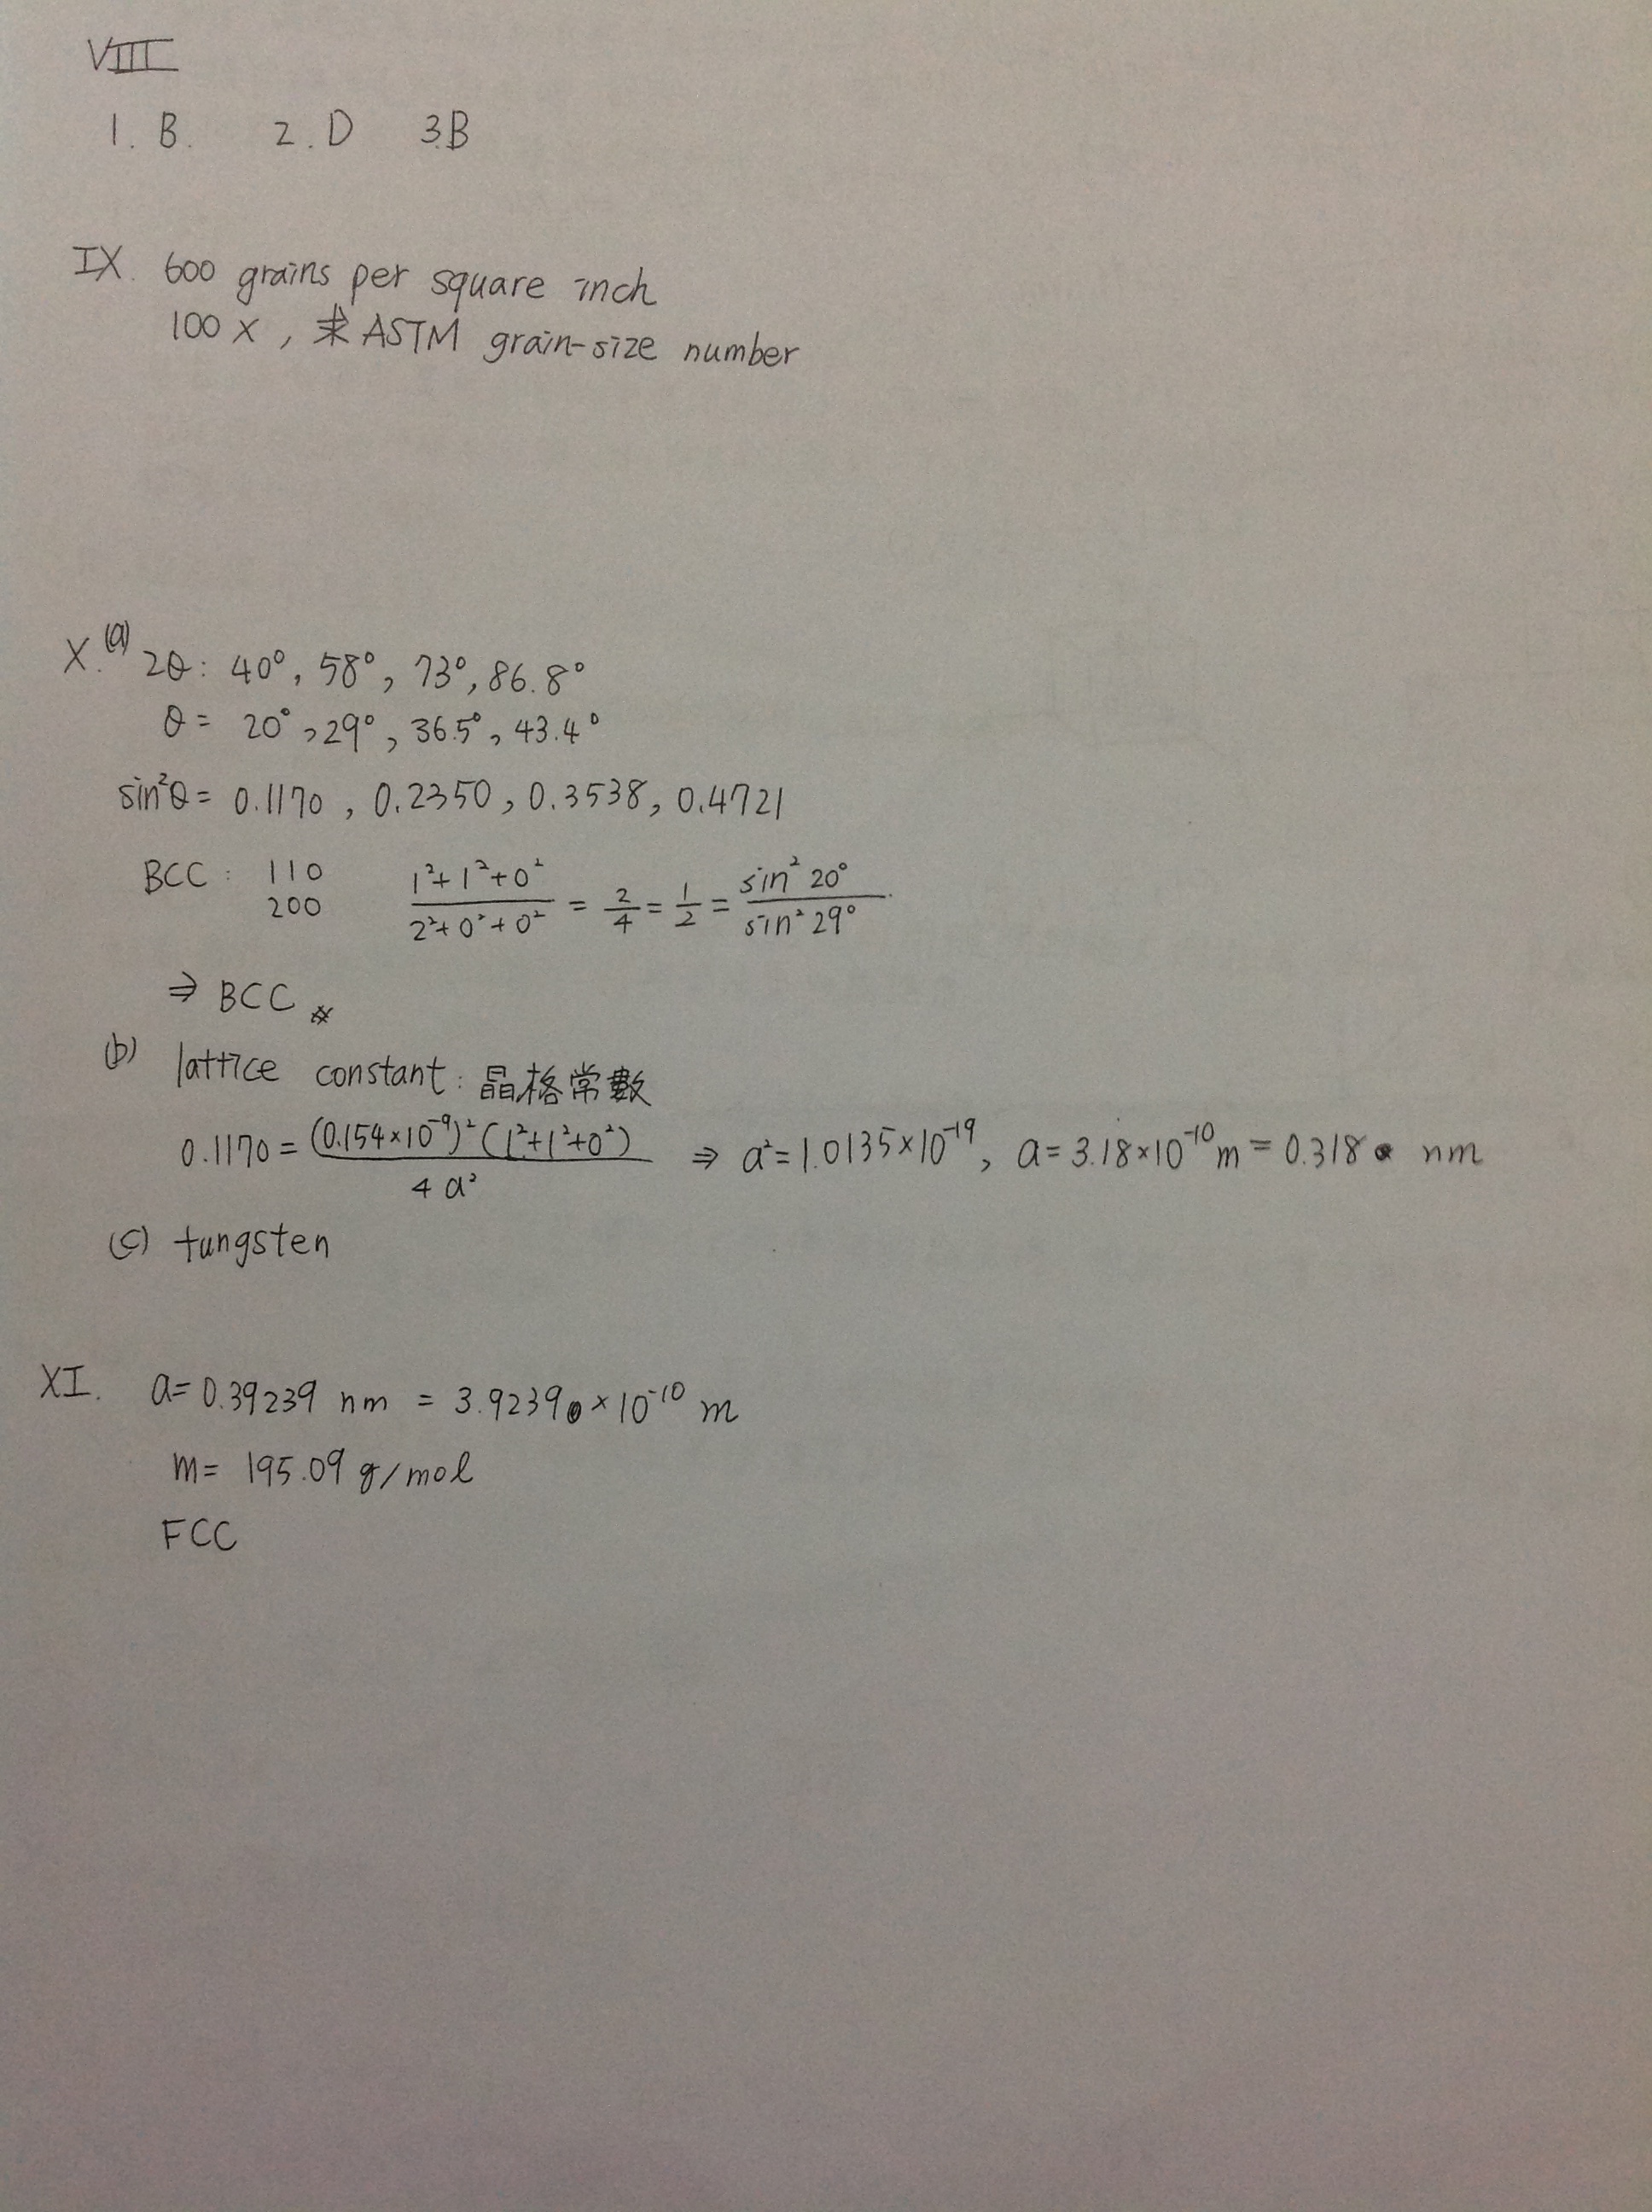 VIII
1. B. 2. D 3.B
IX. 600 grains per square inch
100 x , 求 ASTM grain-size number
X. (a) 2θ: 40°, 58°, 73°, 86.8°
θ = 20°, 29°, 36.5°, 43.4°
sin²θ = 0.1170 , 0.2350 , 0.3538, 0.4721
BCC : 110 200 (1²+1²+0²)/(2²+0²+0²) = 2/4 = 1/2 = sin² 20°/sin² 29°
⇒ BCC #
(b) lattice constant : 晶格常數
0.1170 = (0.154×10⁻⁹)² (1²+1²+0²)/4a² ⇒ a² = 1.0135×10⁻¹⁹, a = 3.18×10⁻¹⁰ m = 0.318 nm
(c) tungsten
XI. a = 0.39239 nm = 3.9239 × 10⁻¹⁰ m
m = 195.09 g/mol
FCC